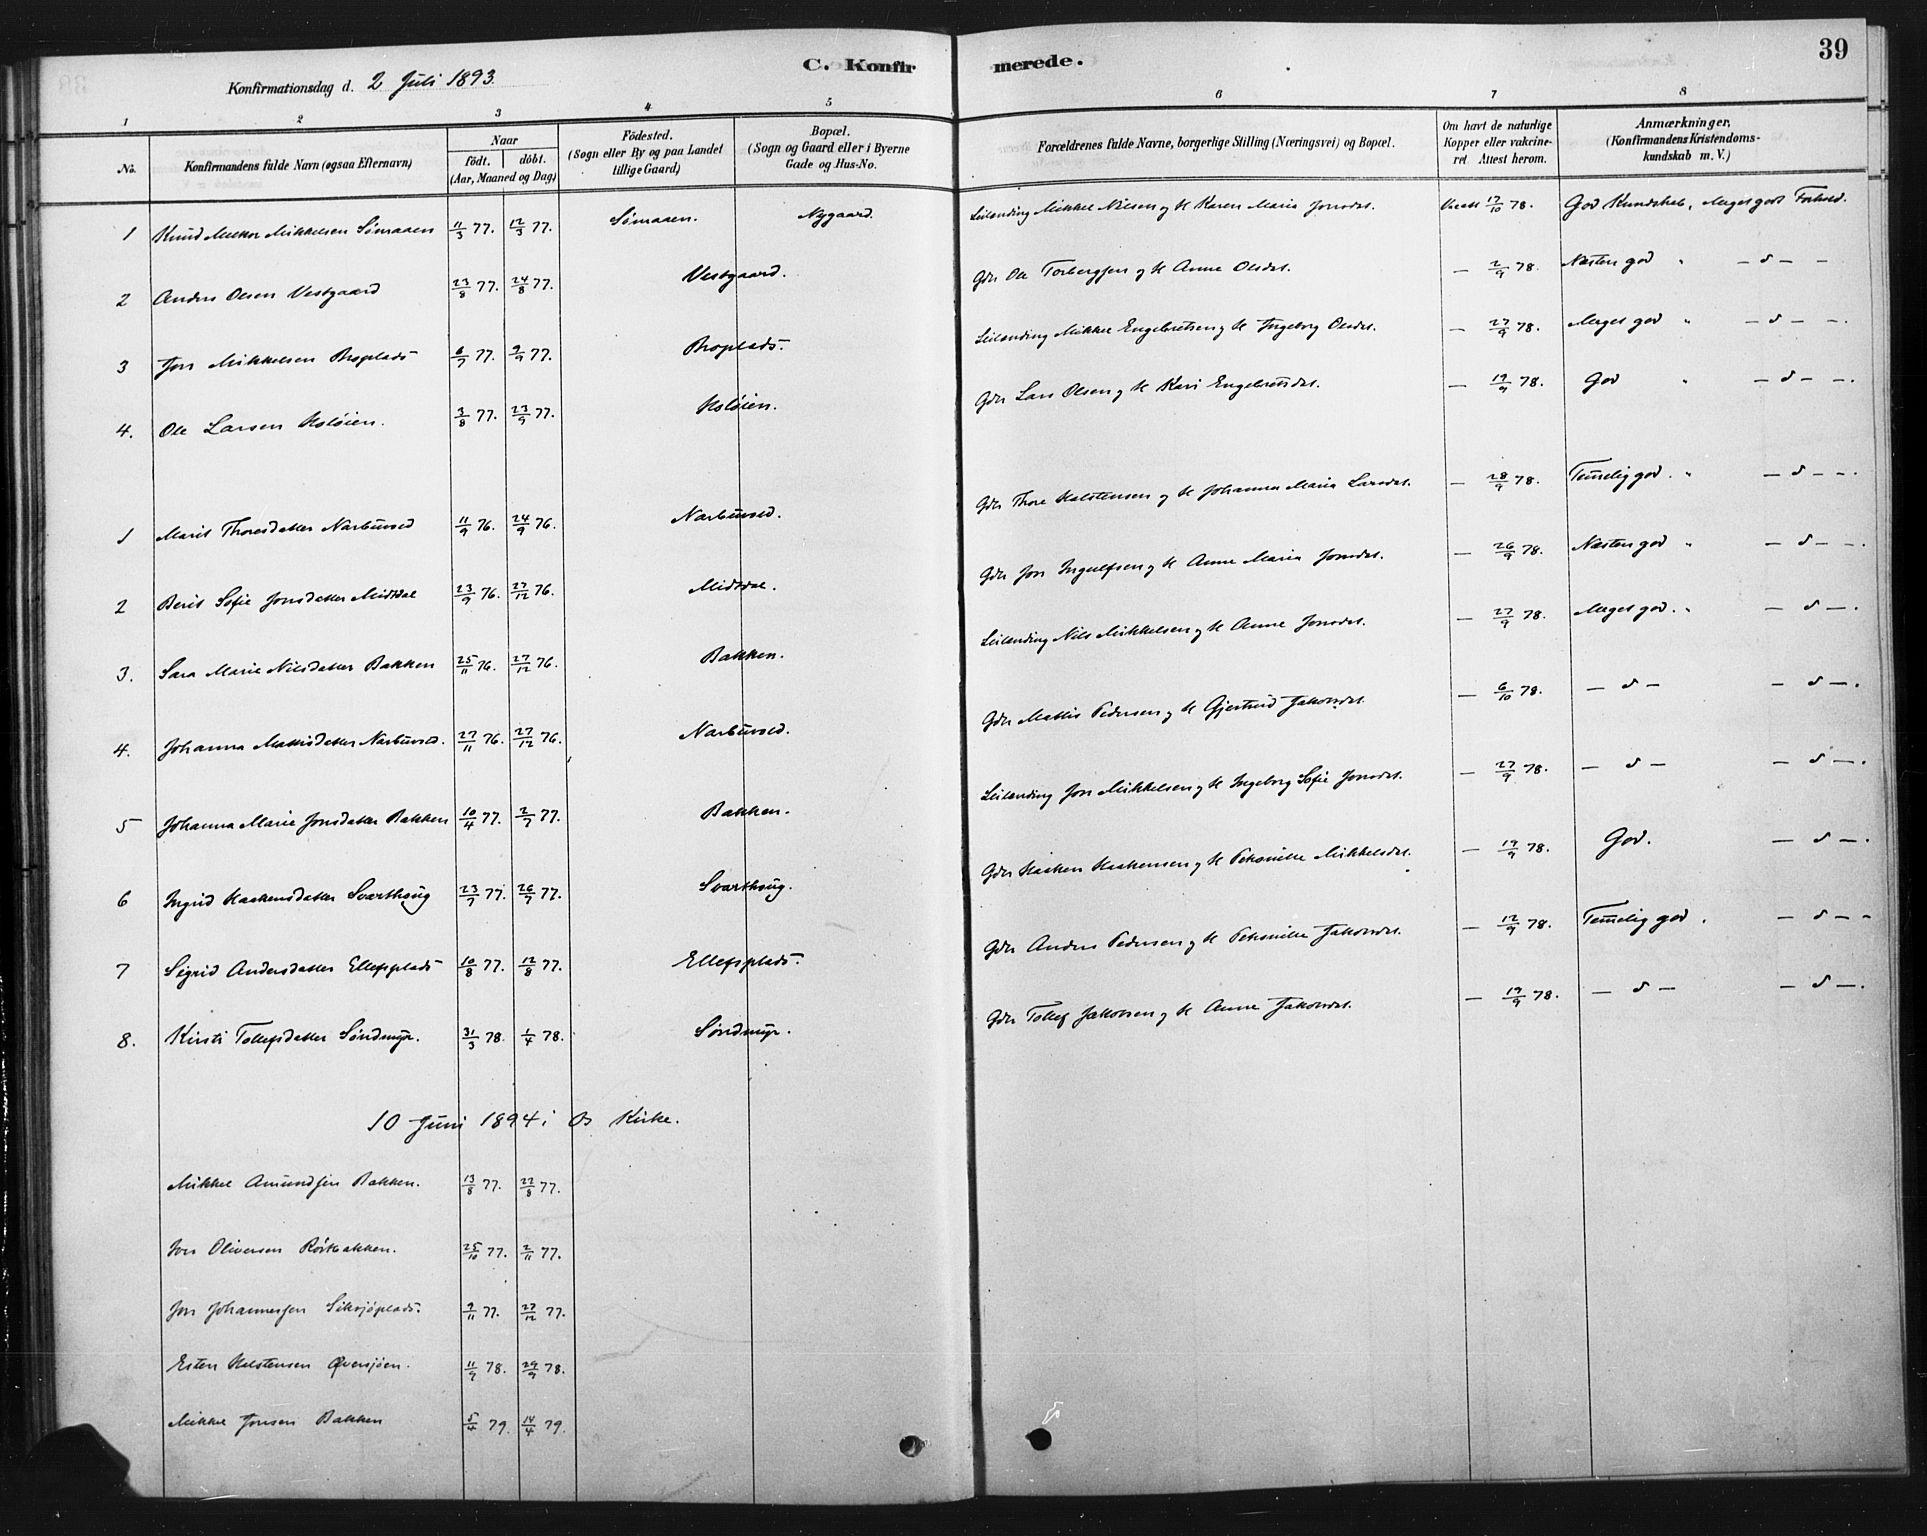 C. Konfirmerede.
39
Konfirmationsdag d. 2 Juli 1893.
1 2 3 4 5 6 7 8
No. Konfirmandens fulde Navn (ogsaa Efternavn) Naar födt. döbt. (Aar, Maaned og Dag) Födested. (Sogn eller By og paa Landet tillige Gaard) Bopæl. (Sogn og Gaard eller i Byerne Gade og Hus-No. Forældrenes fulde Navne, borgerlige Stilling (Næringsvei) og Bopæl. Om havt de naturlige Kopper eller vakcineret. Attest herom. Anmærkninger, (Konfirmandens Kristendomskundskab m. V.)
1 Knud Mikkelsen Sömaaen 11/3 77. 12/3 77. Sömaaen. Nygaard. Leilending Mikkel Nilsen og H Karen Maria Jonsdet. Vacc 17/10 78. God Kundskab, Meget godt Forhold.
2 Anders Olsen Vestgaard 23/8 77. 24/8 77. Vestgaard. Gdr Ole Torbergsen og H Anne Olsdet. — 2/9 78. Næsten god " — d — —
3 Jon Mikkelsen Broplads 6/7 77. 9/9 77. Broplads. Leilending Mikkel Engebretsen og H Ingeborg Olsdet. — 27/9 78. Meget god " — d — —.
4. Ole Larsen Kslöien. 3/8 77. 23/9 77. Kslöien. Gdr Lars Olsen og H Kari Engebretsdet. — 19/9 78. God " — d — —.
1 Marit Thoresdatter Narbuvold 11/9 76. 24/9 76. Narbuvold. Gdr Thore Halstensen og H Johanna Maria Larsdet. — 28/9 78. Temelig god. " — d — —.
2 Berit Sofie Jonsdatter Midtdal 23/9 76. 27/12 76. Midtdal. Gdr Jon Ingulfsen og H Anne Maria Jonsdet. — 26/9 78. Næsten god " — d — —.
3. Sara Marie Nilsdatter Bakken 25/11 76. 27/12 76. Bakken. Leilending Nils Mikkelsen og H Anne Jonsdet. — 27/9 78. Meget god. " — d —.
4. Johanna Mattisdatter Narbuvold. 27/11 76. 27/12 76. Narbuvold. Gdr Mattis Pedersen og H Gjertrud Jakobsdet. — 6/10 78. — d — — d —.
5 Johanna Marie Jonsdatter Bakken 10/4 77. 2/7 77. Bakken. Leilending Jon Mikkelsen og H Ingeborg Sofie Jonsdet. — 27/9 78. — d — — d —.
6 Ingrid Haakensdatter Svarthaug 23/7 77. 26/7 77. Svarthaug. Gdr Haaken Haakensen og H Petronille Mikkelsdet. — 19/9 78. God. — d —.
7 Sigrid Andersdatter Ellefsplads 10/8 77. 12/8 77. Ellefsplads. Gdr Anders Pedersen og H Petronille Jakobsdet. — 12/9 78. Temelig god. — d — —
8. Kirsti Tollefsdatter Söndmyr. 31/3 78. 1/4 78. Söndmyr. Gdr Tollef Jakobsen og H Anne Jakobsdet. — 19/9 78. — d — — d —.
10 Juni 1894 i Os Kirke.
Mikkel Amundsen Bakken. 13/8 77. 22/8 77.
Jon Oliversen Rörbakken. 25/10 77. 2/11 77.
Jon Johannessen Siksjöplads. 9/11 77. 27/12 77.
Esten Halstensen Översjöen. 11/9 78. 29/9 78.
Mikkel Jonsen Bakken 5/4 79. 14/4 79.